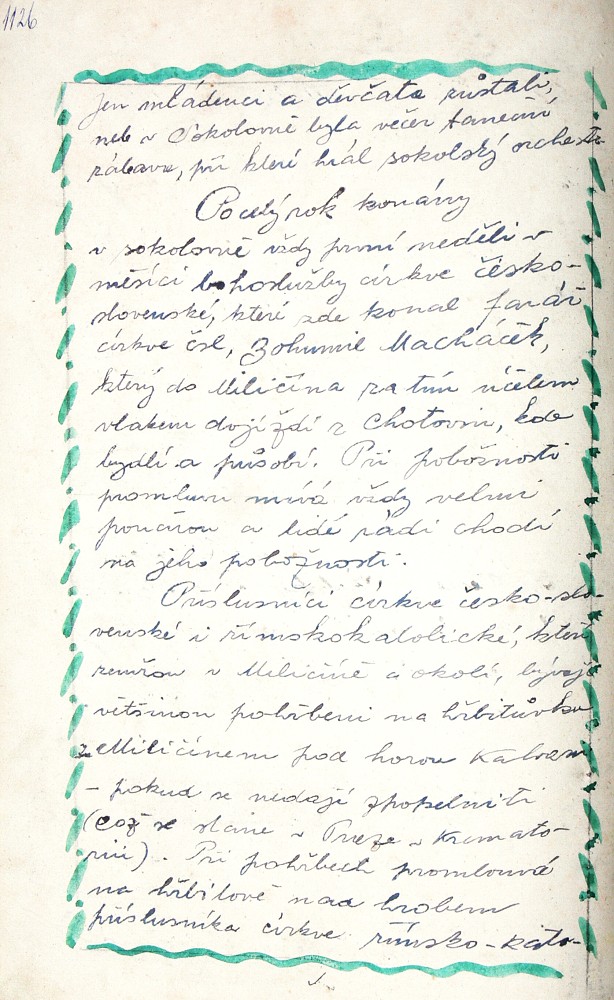 1126
jen mládenci a děvčata zůstali,
neb v Sokolovně byla večer taneční
zábava, při které hrál sokolský orchestr
Po celý rok konány
v sokolovně vždy první neděli v
měsíci bohoslužby církve česko-
slovenské, které zde konal farář
církve čsl, Bohumil Macháček,
který do Miličína za tím účelem
vlakem dojíždí z Chotovin, kde
bydlí a působí. Při pobožnosti
promluvu mívá vždy velmi
poučnou a lidé rádi chodí
na jeho pobožnosti.
Příslušníci církve česko-slo-
venské i římskokatolické, kteří
zemřou v Miličíně a okolí, bývají
většinou pohřbeni na hřbitůvku
za Miličínem pod horou Kalvarií
- pokud se nedají zpopelniti
(což se stane v Praze v Kremato-
riu). Při pohřbech promlouvá
na hřbitově nad hrobem
příslušníka církve římsko-kato-